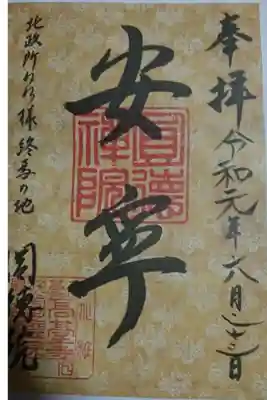 奉拝 令和元年六月二十三日
安寧
圓德禅院
北政所ねね様 終焉の地
圓德院